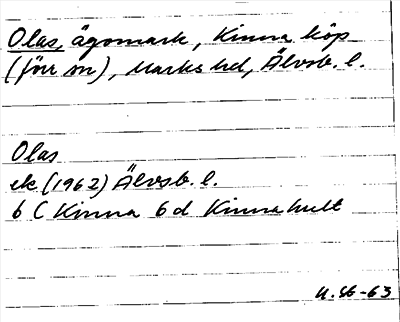 Olas, ägomark, Kinna köp
(förr sn), Marks hd, Älvsb. l.
Olas
ek (1962) Älvsb. l.
6 C Kinna 6 d Kinnahult
-63